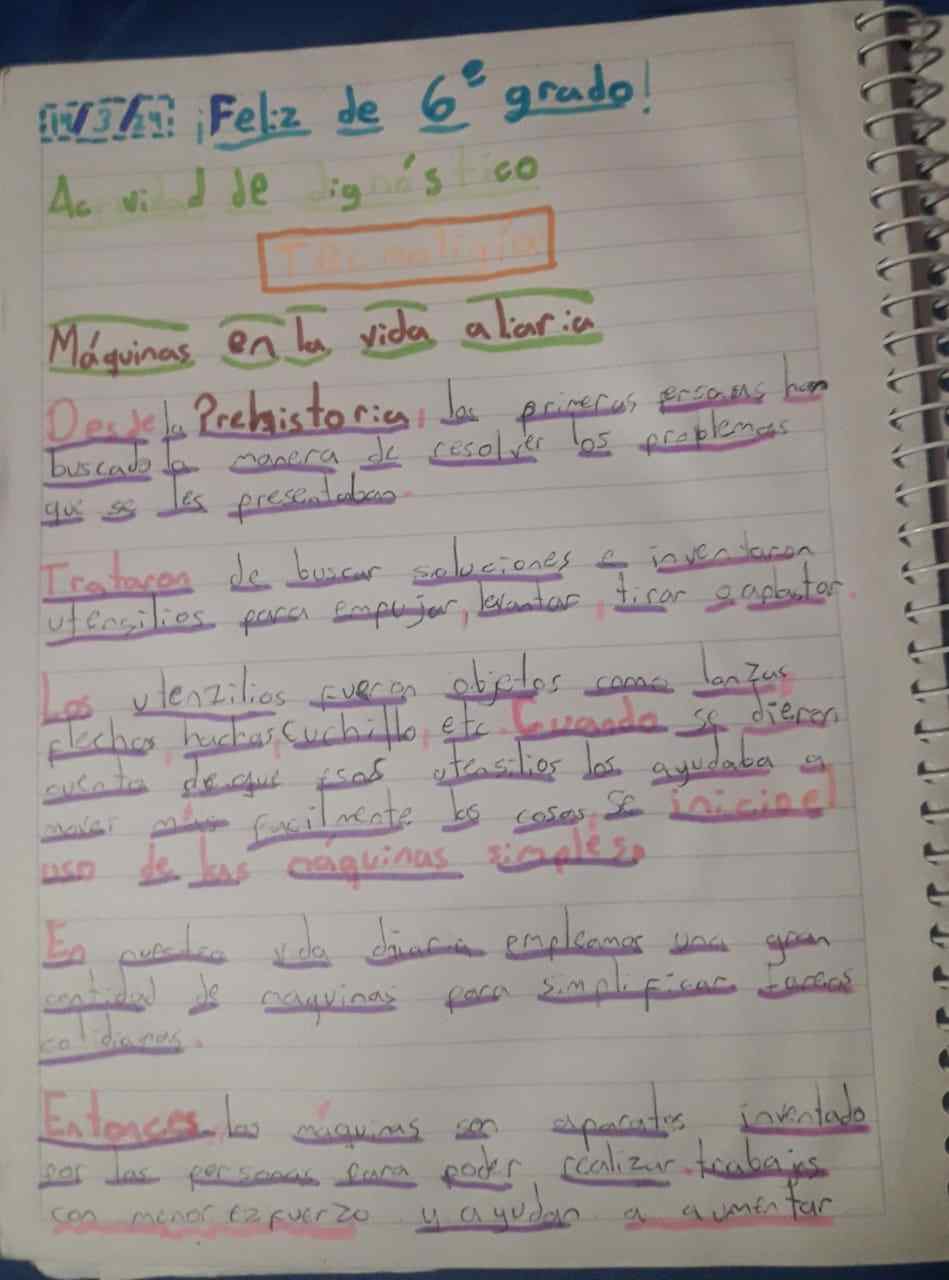 14/3/24 ¡Feliz de 6° grado!
Actividad de dignóstico
Tecnoligía
Máquinas en la vida aliaria
Desde la Prehistoria, las primeras ersonas han
buscado la manera de resolver los problemas
que se les presentaban.
Trataron de buscar soluciones e inventaron
utensilios para empujar, levantar, tirar o aplastar.
Los utenzilios fueron objetos como lanzas,
flechas, hachas, cuchillo, etc. Cuando se dieron
cuenta de que esos utensilios los ayudaba a
mover más facilmente las cosas, se inicio el
uso de las máquinas simplés.
En nuestra vida diaria empleamos una gran
cantidad de maquinas para simplificar tareas
cotidianas.
Entonces, las máquinas son aparatos inventado
por las personas para poder realizar trabajos
con menor ezfuerzo y ayudan a aumentar